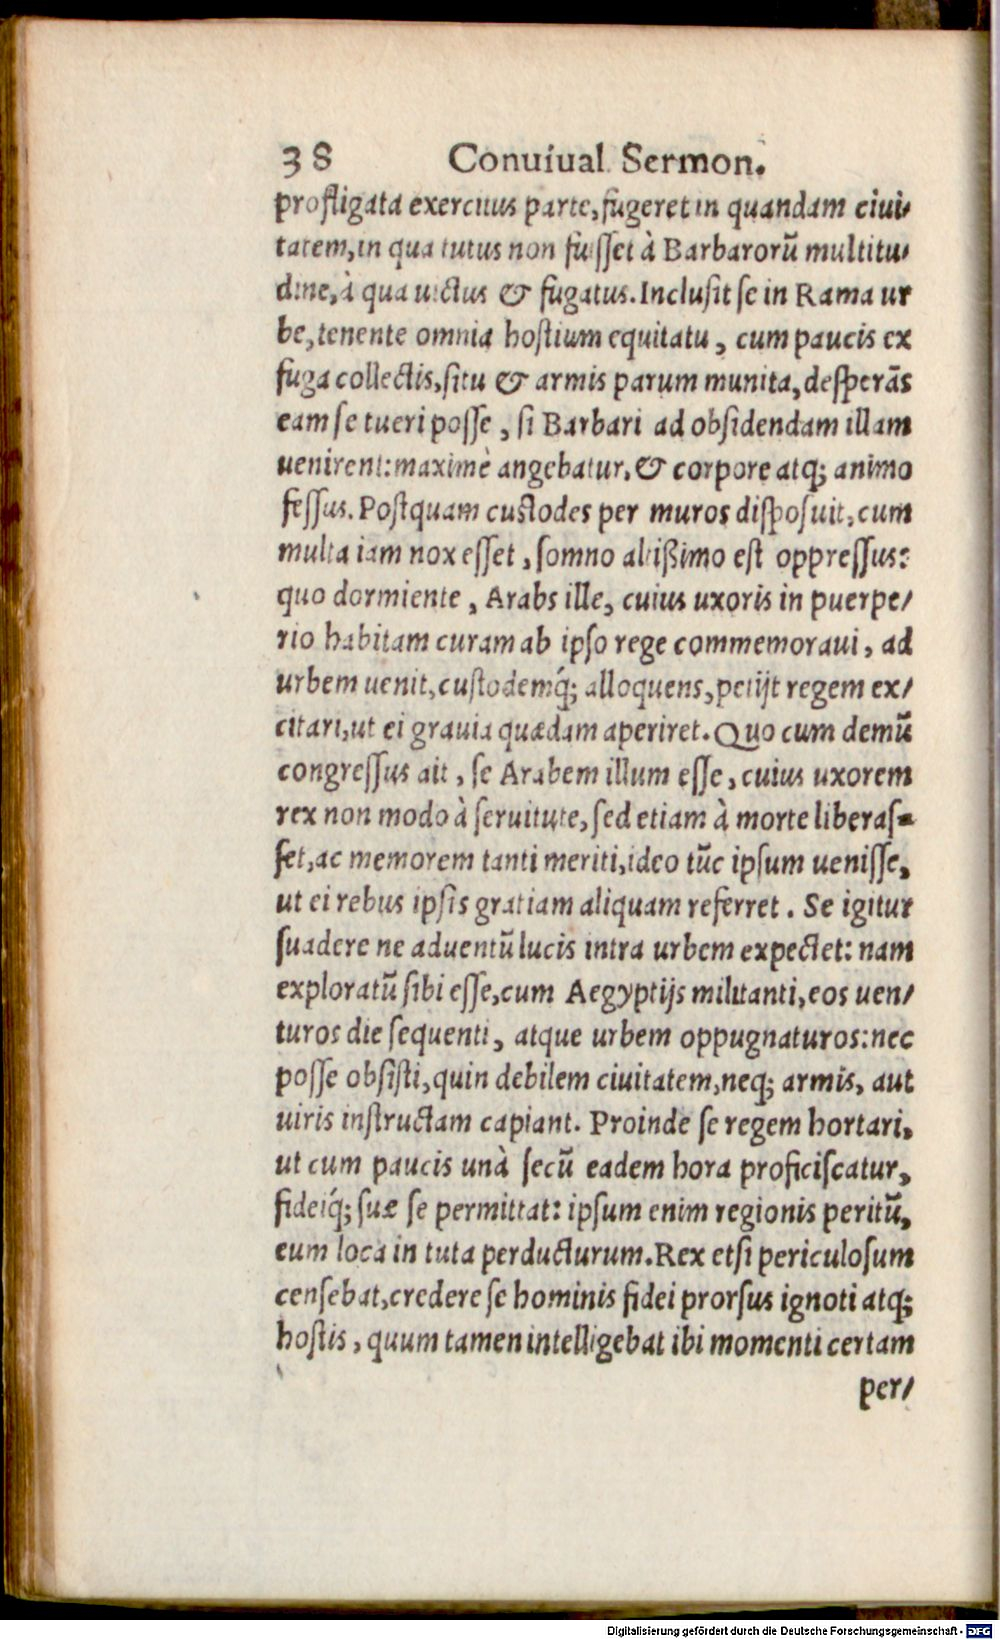 38 Conuiual. Sermon.
profligata exercitus parte, fugeret in quandam ciui/
tatem, in qua tutus non fuisset à Barbarorũ multitu/
dine, à qua uictus & fugatus. Inclusit se in Rama ur
be, tenente omnia hostium equitatu, cum paucis ex
fuga collectis, situ & armis parum munita, desperãs
eam se tueri posse, si Barbari ad obsidendam illam
uenirent: maximè angebatur, & corpore atq; animo
fessus. Postquam custodes per muros disposuit, cum
multa iam nox esset, somno altißimo est oppressus:
quo dormiente, Arabs ille, cuius uxoris in puerpe/
rio habitam curam ab ipso rege commemoraui, ad
urbem uenit, custodemq́; alloquens, petijt regem ex/
citari, ut ei grauia quædam aperiret. Quo cum demũ
congressus ait, se Arabem illum esse, cuius uxorem
rex non modo à seruitute, sed etiam à morte liberas-
set, ac memorem tanti meriti, ideo tũc ipsum uenisse,
ut ei rebus ipsis gratiam aliquam referret. Se igitur
suadere ne aduentũ lucis intra urbem expectet: nam
exploratũ sibi esse, cum Aegyptijs militanti, eos uen/
turos die sequenti, atque urbem oppugnaturos: nec
posse obsisti, quin debilem ciuitatem, neq; armis, aut
uiris instructam capiant. Proinde se regem hortari,
ut cum paucis unà secũ eadem hora proficiscatur,
fideiq́; suæ se permittat: ipsum enim regionis peritũ,
eum loca in tuta perducturum. Rex etsi periculosum
censebat, credere se hominis fidei prorsus ignoti atq;
hostis, quum tamen intelligebat ibi momenti certam
per/
Digitalisierung gefördert durch die Deutsche Forschungsgemeinschaft - DFG